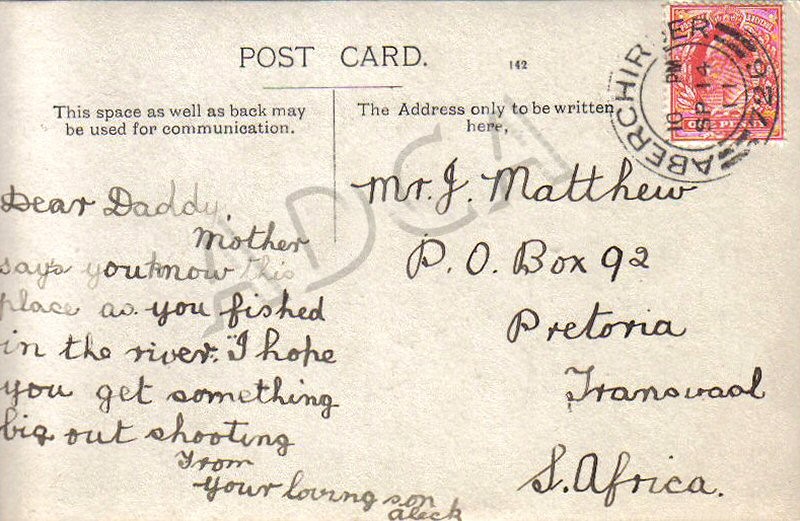 POST CARD.
142
This space as well as back may
be used for communication.
The Address only to be written
here,
ABERCHIRDER
10 PM
SP 14
11
729
ONE PENNY
ADCA
Dear Daddy,
Mother
says you know this
place as you fished
in the river. I hope
you get something
big out shooting
From
your loving son
aleck
Mr. J. Matthew
P. O. Box 92
Pretoria
Transvaal
S. Africa.